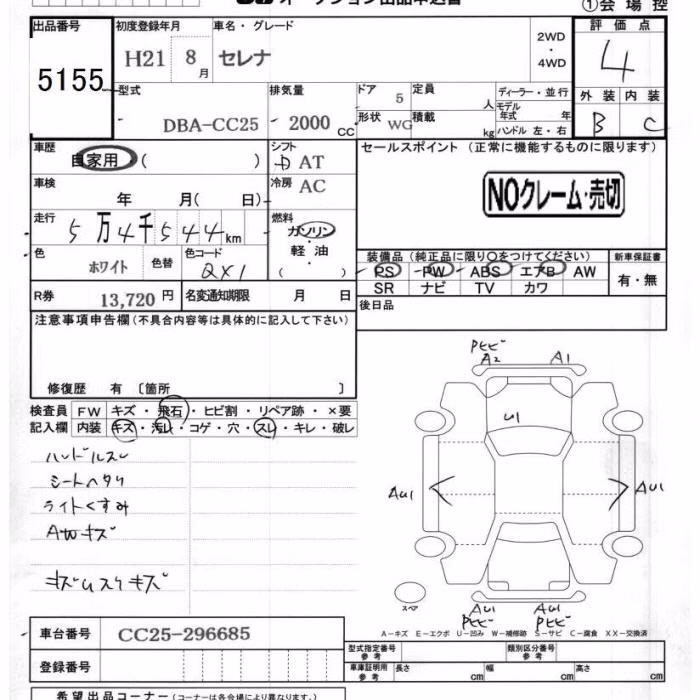 ①会場控
出品番号
5155
初度登録年月
H21 8月
車名・グレード
セレナ
2WD
・
4WD
評価点
4
外装 内装
B C
型式
DBA-CC25
排気量
2000 CC
ドア 5
定員 人
形状 WG
積載 kg
ディーラー・並行
モデル年式 年
ハンドル 左・右
車歴
自家用 ( )
シフト
AT
冷房 AC
車検
年 月( 日)
走行
5万4千544km
燃料
ガソリン
軽油
( )
色
ホワイト
色替
色コード
QX1
R券
13,720円
名変通知期限 月 日
セールスポイント (正常に機能するものに限ります)
NOクレーム・売切
装備品 (純正品に限り○をつけてください)
PS PW ABS エアB AW
SR ナビ TV カワ
新車保証書
有・無
後日品
注意事項申告欄(不具合内容等は具体的に記入して下さい)
修復歴 有 〔箇所 〕
検査員記入欄
FW キズ・飛石・ヒビ割・リペア跡・×要
内装 キズ・汚れ・コゲ・穴・スレ・キレ・破レ
ハンドルスレ
シートヘタリ
ライトくすみ
AWキズ
キズUスリキズ
Pヒビ
A2
A1
U1
AU1
AU1
AU1
Pヒビ
AU1
Pヒビ
スペア
A-キズ E-エクボ U-凹み W-補修跡 S-サビ C-腐食 XX-交換済
車台番号
CC25-296685
登録番号
型式指定番号
参考
類別区分番号
参考
車庫証明用
参考
長さ cm
幅 cm
高さ cm
希望出品コーナー(コーナーは各会場により異なります。)